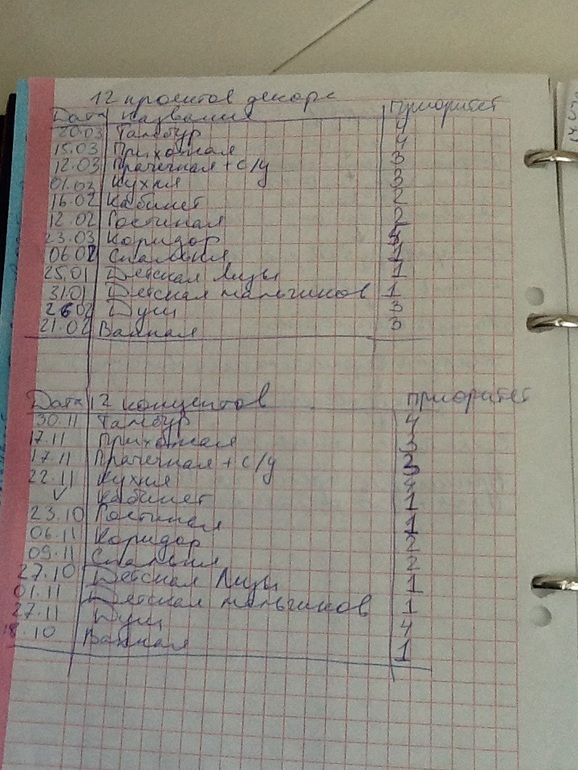 12 проектов декора
Дата Название Приоритет
20.03 Тамбур 4
15.03 Прихожая 4
12.03 Прачечная + с/у 3
01.02 Кухня 3
16.02 Кабинет 2
12.02 Гостиная 2
23.03 Коридор
06.02 Спальня 1
25.01 Детская Лизы 1
31.01 Детская мальчиков 1
26.02 Душ 3
21.02 Ванная 3
Дата 12 концептов Приоритет
30.11 Тамбур 4
17.11 Прихожая 3
17.11 Прачечная + с/у 3
22.11 Кухня 4
✓ Кабинет 1
23.10 Гостиная 1
06.11 Коридор 2
09.11 Спальня 2
27.10 Детская Лизы 1
01.11 Детская мальчиков 1
27.11 Душ 4
18.10 Ванная 1